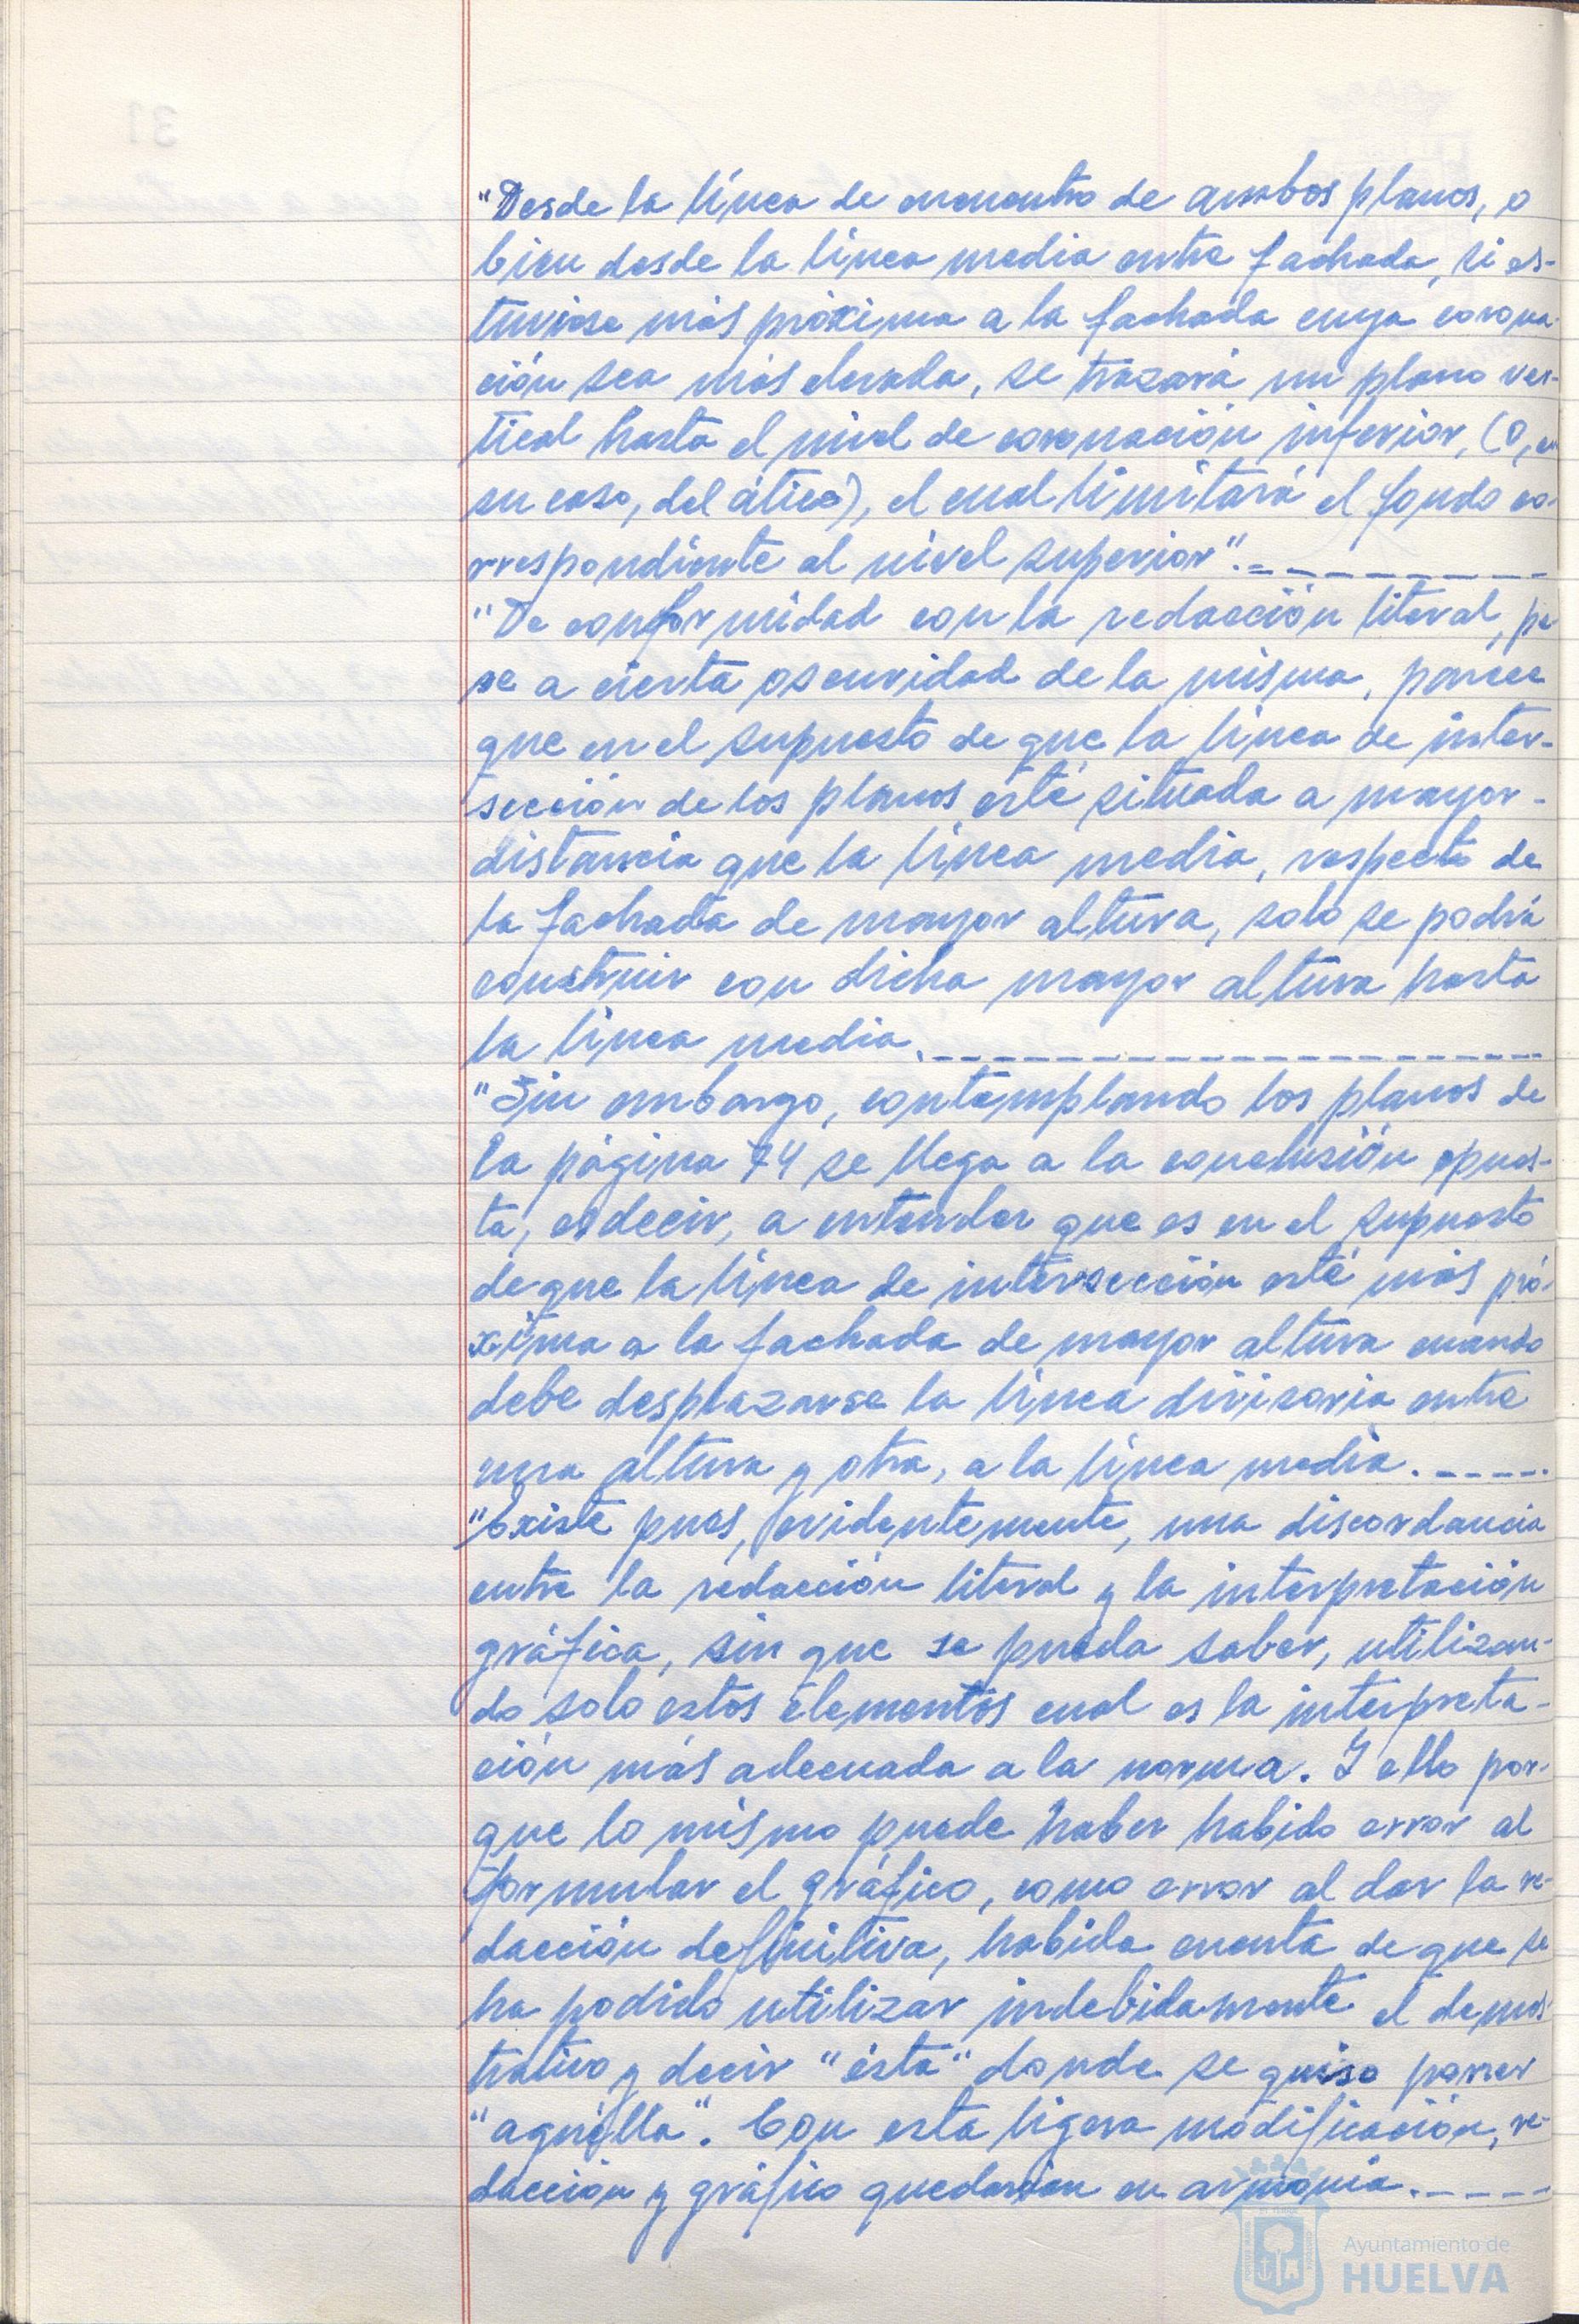 "Desde la línea de encuentro de ambos planos, o
bien desde la línea media entre fachada, si es-
tuviese más próxima a la fachada cuya corona-
ción sea más elevada, se trazará un plano ver-
tical hasta el nivel de coronación inferior, (o, en
su caso, del ático), el cual limitará el fondo co-
rrespondiente al nivel superior".- - - - - - - - -
"De conformidad con la redacción literal, pe-
se a cierta oscuridad de la misma, parece
que en el supuesto de que la línea de inter-
sección de los planos esté situada a mayor-
distancia que la línea media, respecto de
la fachada de mayor altura, solo se podrá
construir con dicha mayor altura hasta
la línea media.- - - - - - - - - - - - - - - -
"Sin embargo, contemplando los planos de
la página 74 se llega a la conclusión opues-
ta, es decir, a entender que es en el supuesto
de que la línea de intersección esté más pró-
xima a la fachada de mayor altura cuando
debe desplazarse la línea divisoria entre
una altura y otra, a la línea media.- - - - -
"Existe pues, evidentemente, una discordancia
entre la redacción literal y la interpretación
gráfica, sin que se pueda saber, utilizan-
do solo estos elementos cual es la interpreta-
ción más adecuada a la norma. Y ello por-
que lo mismo puede haber habido error al
formular el gráfico, como error al dar la re-
dacción definitiva, habida cuenta de que se
ha podido utilizar indebidamente el demos-
trativo y decir "ésta" donde se quiso poner
"aquélla". Con esta ligera modificación, re-
dacción y gráfico quedarían en armonía.- - - -
Ayuntamiento de
HUELVA